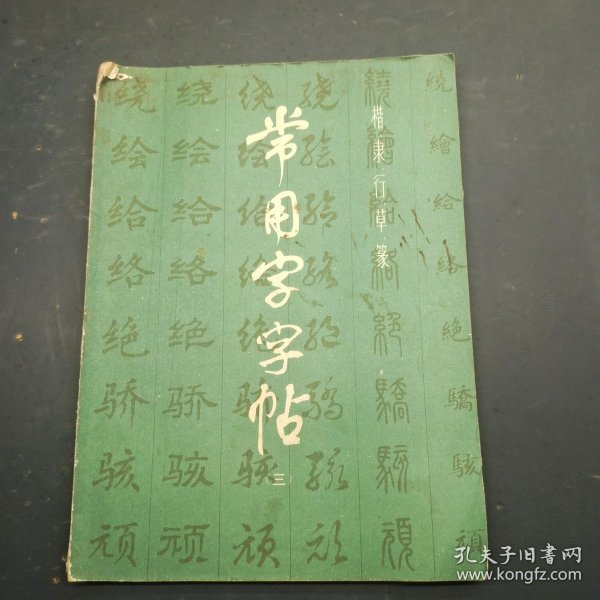 常用字字帖
(三)
楷隶行草篆
绕 绕 绕 绕 繞 繞
绘 绘 绘 绘 繪 繪
给 给 给 给 給 給
络 络 络 络 絡 絡
绝 绝 绝 绝 絕 絶
骄 骄 骄 骄 驕 驕
骇 骇 骇 骇 駭 駭
顽 顽 顽 顽 頑 頑
孔夫子旧书网
www.kongfz.com